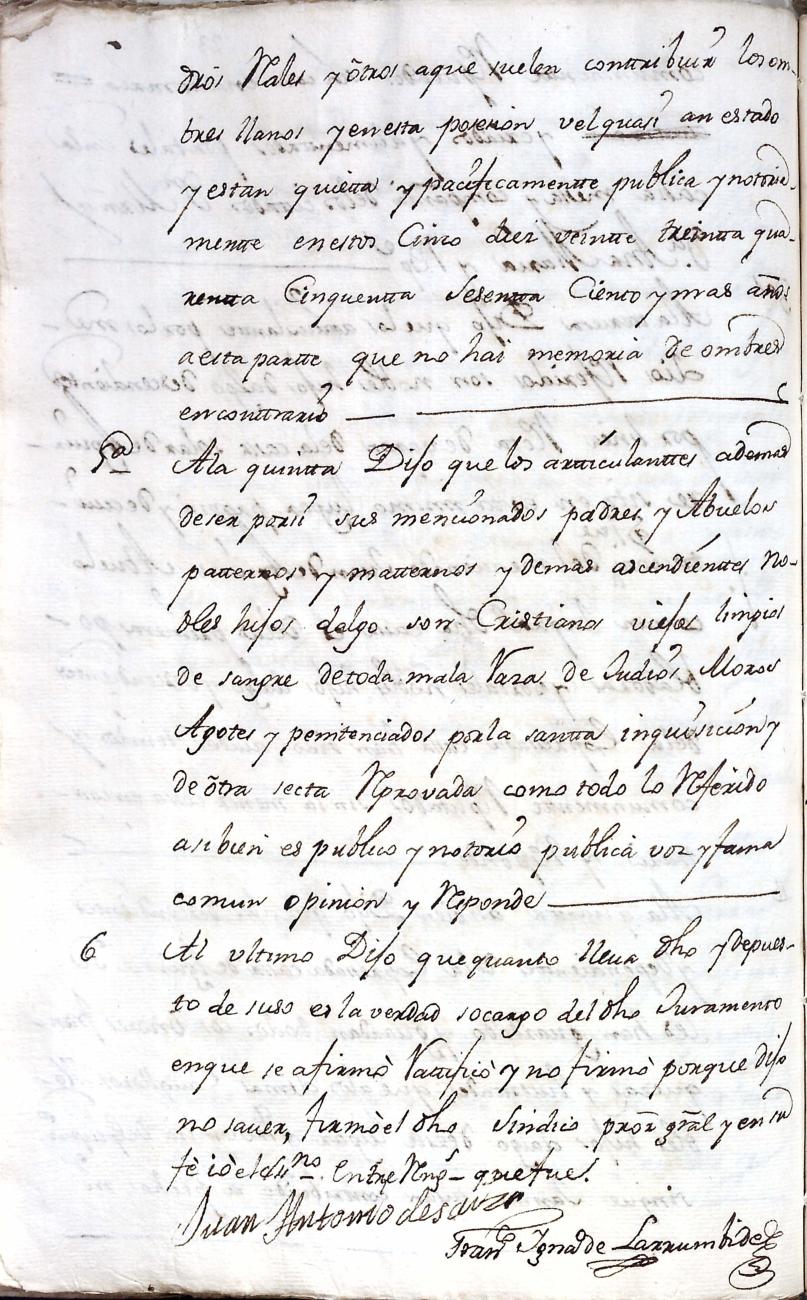 dròs Rales y òtros aque suelen conttribuir los om-
bres llanos y en esta posesion velquasi an estado
y estan quietta y pacificamentte publica y nottoria-
mentte en estos Cinco diez veintte treintta qua-
rentta Cinquentta Sesentta Ciento y mas años
a esta partte que no hai memoria de ombres
en conttrario
5ª A la quintta Dijo que los artticulanttes ademas
de ser por si sus mencionados padres y Abuelos
patternos y matternos y demas ascendienttes No-
bles hijos dalgo son Cristianos viejos limpios
de sangre de toda mala Raza de Judios Moros
Agotes y penitenciados por la santta inquisicion y
de òtra secta Reprovada como todo lo Referido
asi bien es publico y notorio publica voz y fama
comun opinion y Responde
6 Al ultimo Dijo que quanto lleva dho y depues-
to de suso es la verdad so cargo del dho Juramento
en que se afirmò Rattificò y no firmò porque dijo
no saver, firmò el dho Sindico pror gral y en su
fè iò el ssno. Entre Rngs - que fue.
Juan Antonio de Sauza
Franco Ignao de Larrumbide